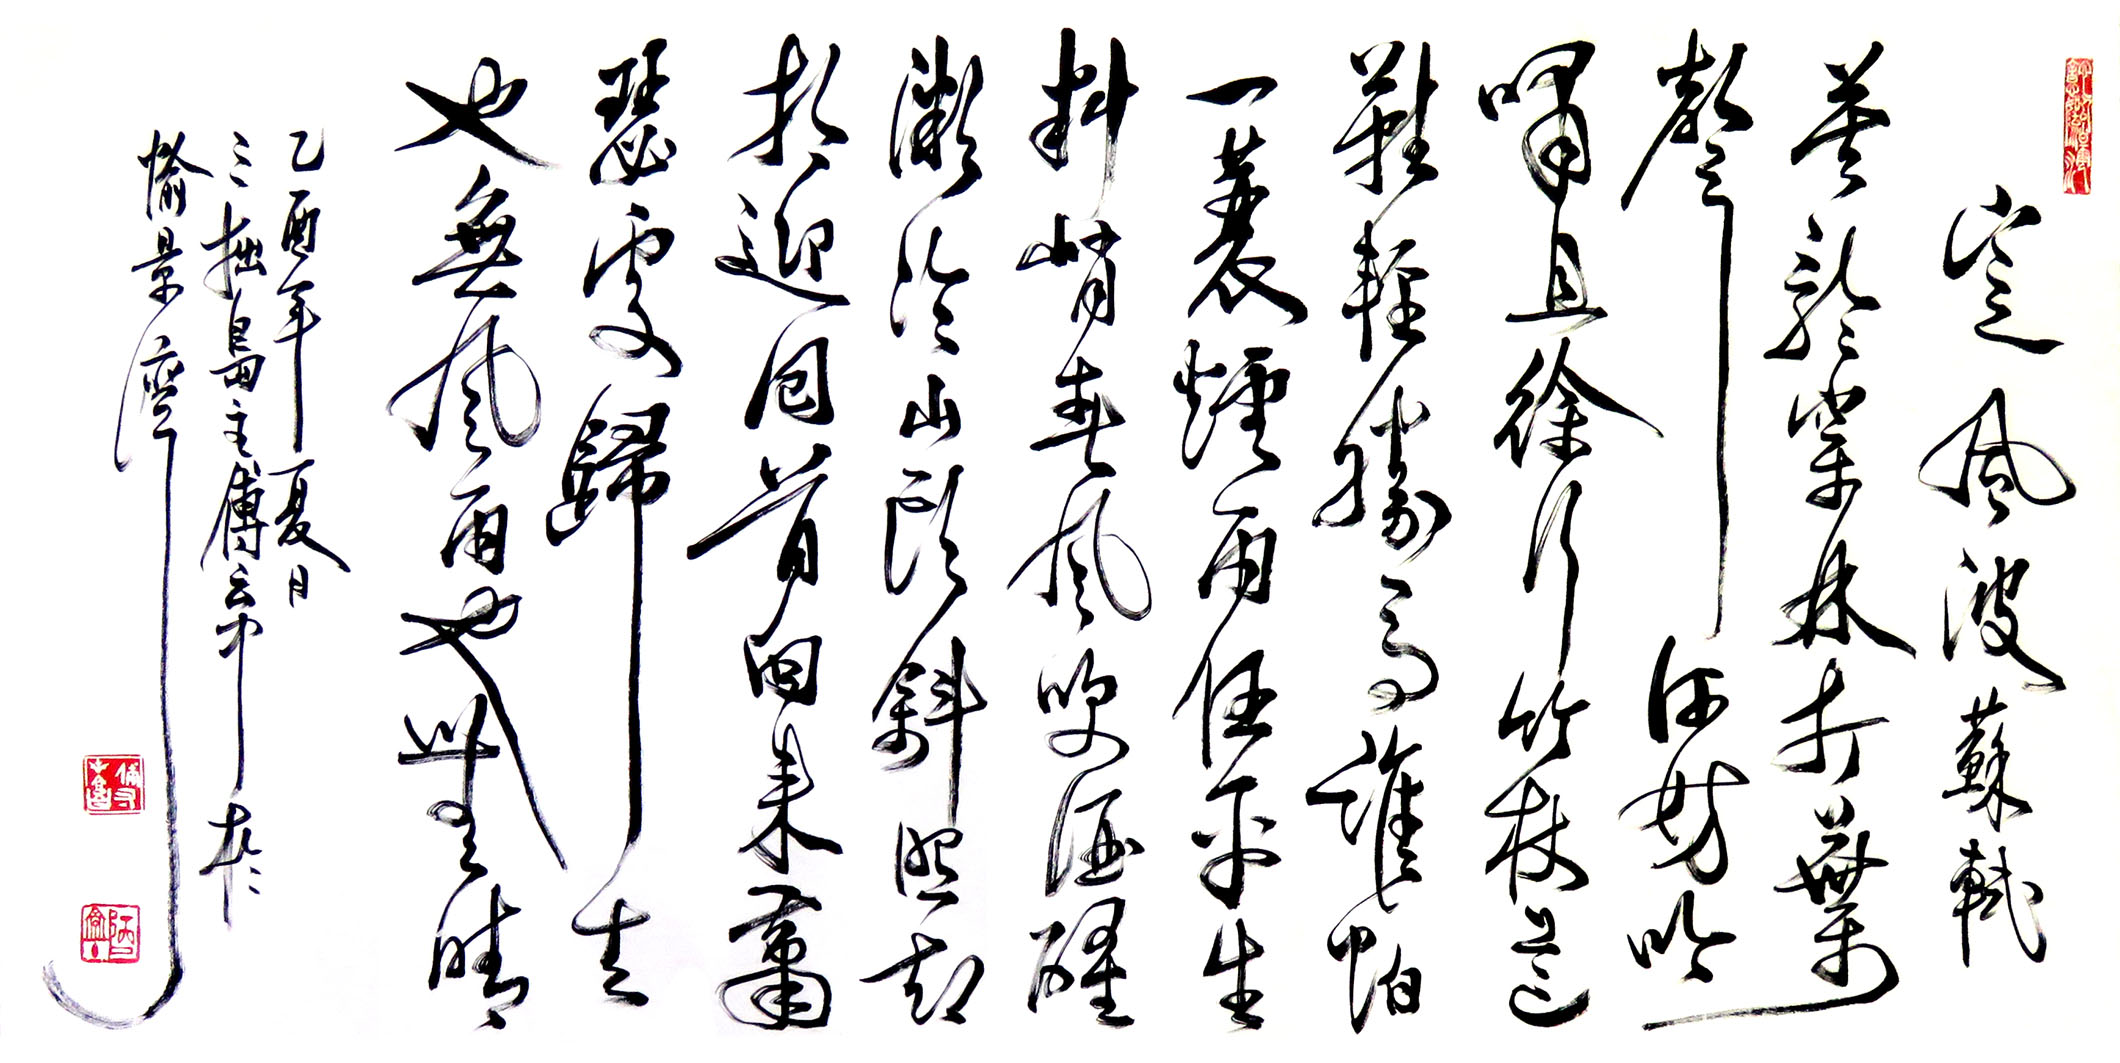 定風波蘇軾
莫聽穿林打葉
聲何妨吟
嘯且徐行竹杖芒
鞋輕勝馬誰怕
一蓑煙雨任平生
料峭春風吹酒醒
微冷山頭斜照却
相迎回首向來蕭
瑟處歸去
也無風雨也無晴
乙酉年夏日
三拙島主傅云中於
愉景灣